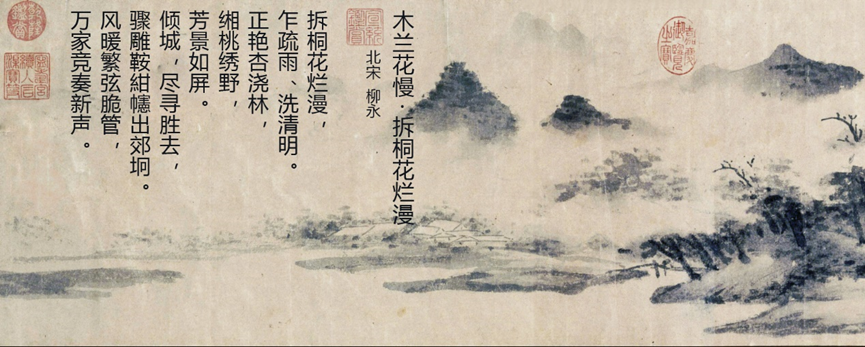 木兰花慢·拆桐花烂漫
北宋 柳永
拆桐花烂漫，
乍疏雨、洗清明。
正艳杏浇林，
缃桃绣野，
芳景如屏。
倾城，尽寻胜去，
骤雕鞍紺幰出郊坰。
风暖繁弦脆管，
万家竞奏新声。